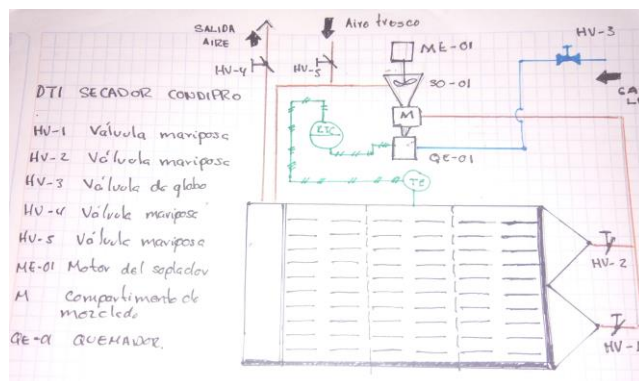 SALIDA
AIRE
Aire fresco
HV-4
HV-5
ME-01
SO-01
M
QE-01
HV-3
GA
TE
HV-2
HV-1
DTI SECADOR CONDIPRO
HV-1 Válvula mariposa
HV-2 Válvula mariposa
HV-3 Válvula de globo
HV-4 Válvula mariposa
HV-5 Válvula mariposa
ME-01 Motor del soplador
M Compartimento de
mezclado
QE-01 QUEMADOR.